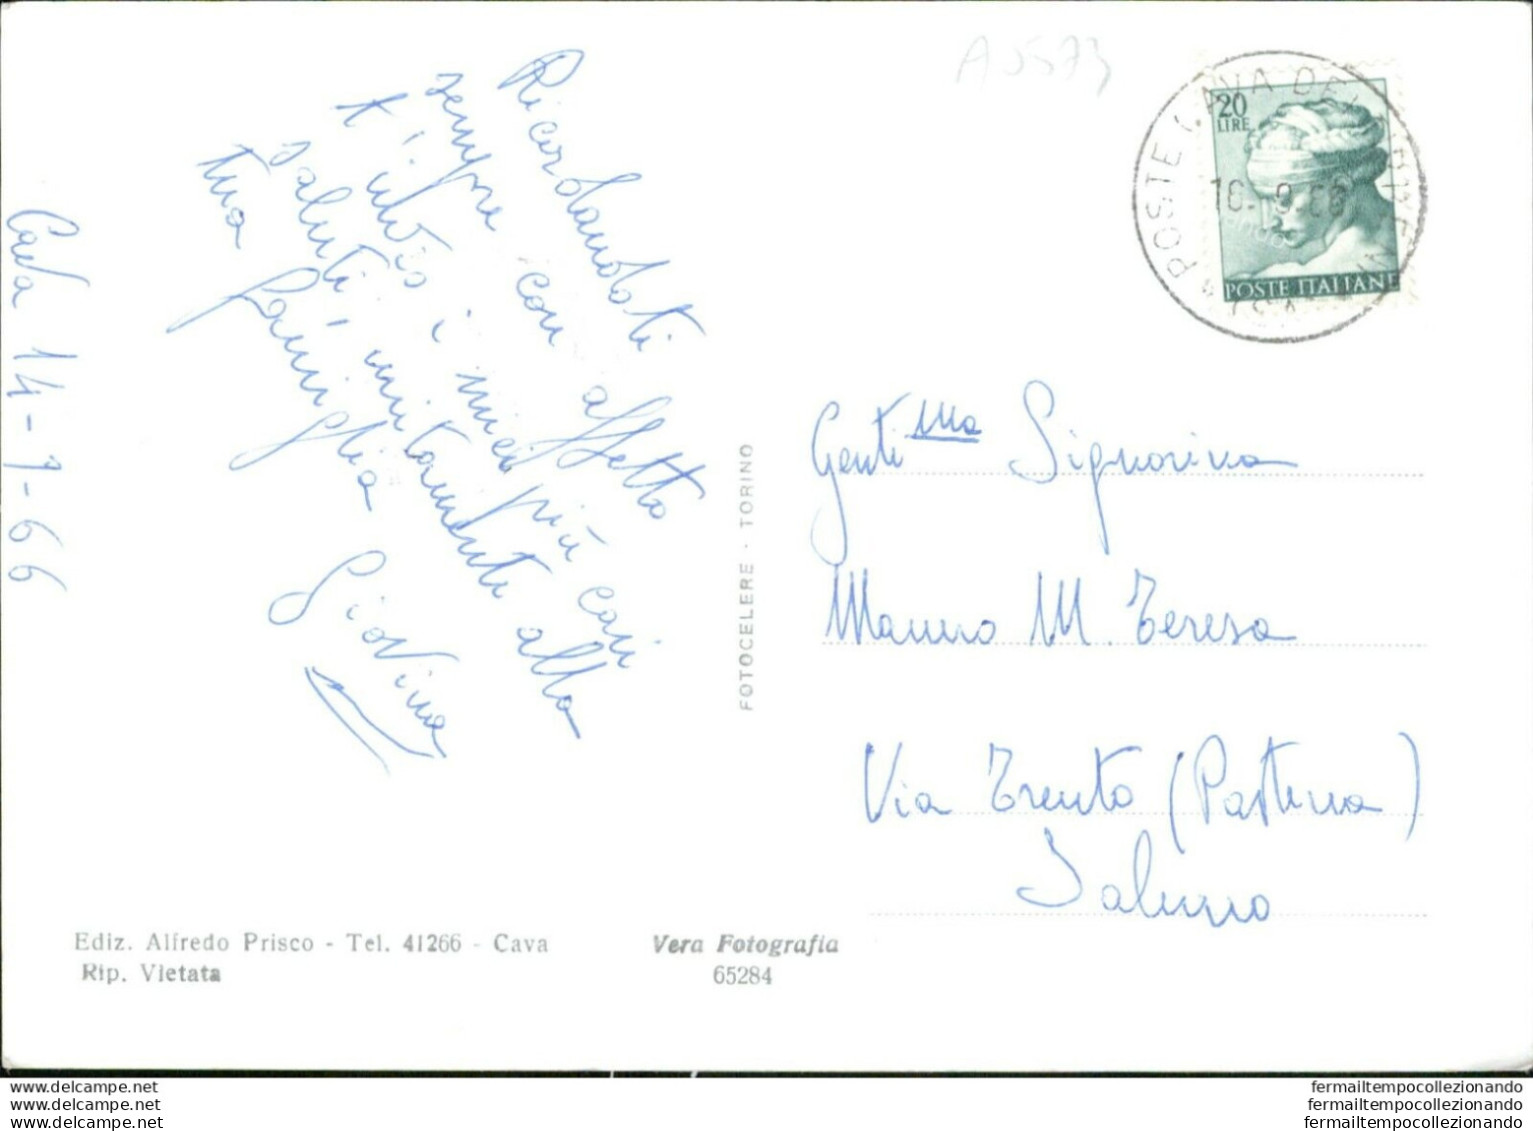 A5573
POSTE CAVA DEI TIRRENI
16. 9.66
20
LIRE
POSTE ITALIANE
Cava 14-9-66
Ricordandoti
sempre con affetto
t'invio i miei più cari
saluti unitamente alla
tua famiglia
Giovina
FOTOCELERE · TORINO
Genti ma Signorina
Manno M. Teresa
Via Trento (Pastena)
Salerno
Ediz. Alfredo Prisco - Tel. 41266 - Cava
Rip. Vietata
Vera Fotografia
65284
www.delcampe.net
www.delcampe.net
www.delcampe.net
fermailtempocollezionando
fermailtempocollezionando
fermailtempocollezionando